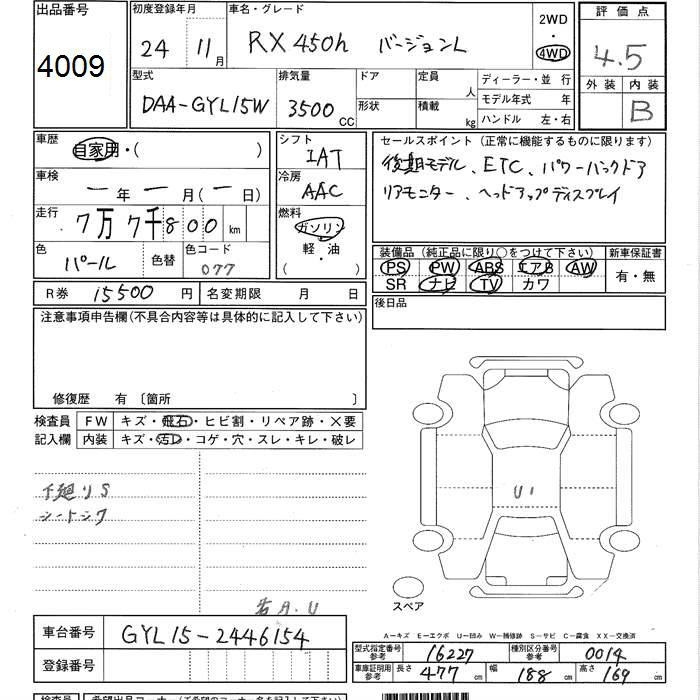 出品番号
4009
初度登録年月
24 11月
車名・グレード
RX450h バージョンL
2WD
・
4WD
評価点
4.5
外装 内装
B
型式
DAA-GYL15W
排気量
3500 CC
ドア
形状
定員
人
積載
kg
ディーラー・並行
モデル年式 年
ハンドル 左・右
車歴
自家用・( )
車検
一年一月(一日)
走行
7万7千800 km
色
パール
色替
色コード
077
シフト
IAT
冷房
AAC
燃料
ガソリン
軽・油
( )
セールスポイント(正常に機能するものに限ります)
後期モデル、ETC、パワーバックドア
リアモニター、ヘッドアップディスプレイ
装備品(純正品に限り○をつけて下さい)
PS PW ABS エアB AW
SR ナビ TV カワ
新車保証書
有・無
R券 15500 円
名変期限 月 日
後日品
注意事項申告欄(不具合内容等は具体的に記入して下さい)
修復歴 有〔箇所 〕
検査員
記入欄
FW キズ・飛石・ヒビ割・リペア跡・×要
内装 キズ・汚レ・コゲ・穴・スレ・キレ・破レ
下廻りS
シートシワ
U1
スペア
車台番号
GYL15-2446154
登録番号
A−キズ E−エクボ U−凹み W−補修跡 S−サビ C−腐食 XX−交換済
型式指定番号
参考
16227
種別区分番号
参考
0014
車庫証明用
参考
長さ 477 cm
幅 188 cm
高さ 169 cm